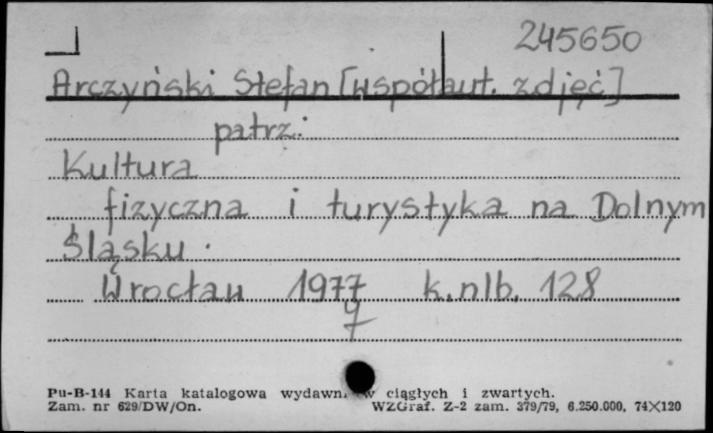 245650
Arczyński Stefan [współaut. zdjęć]
patrz:
Kultura
fizyczna i turystyka na Dolnym
Śląsku.
Wrocław 1977 k.nlb. 128
9
Pu-B-144 Karta katalogowa ciągłych i zwartych.
Zam. nr 629/DW/On. WZGraf. Z-2 zam. 379/79, 6.250.000, 74X120